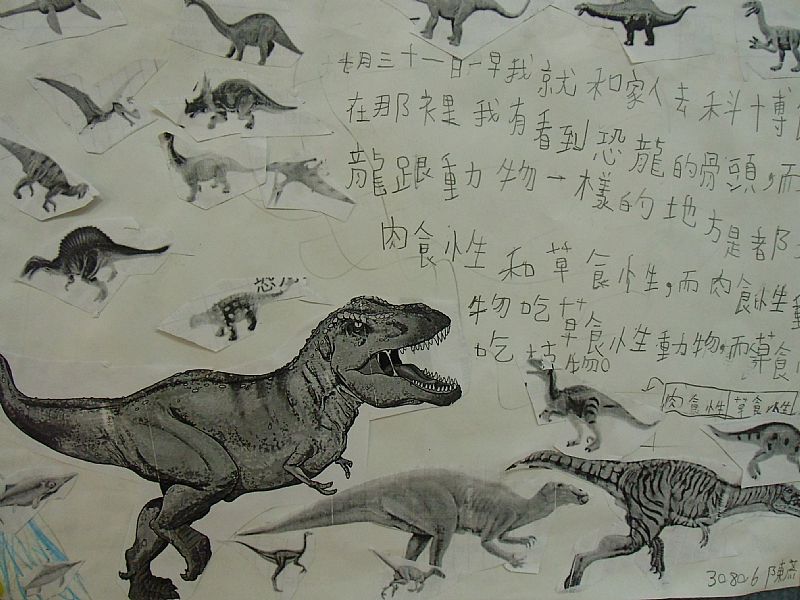 七月三十一日一早我就和家人去科博
在那裡我有看到恐龍的骨頭，而
龍跟動物一樣的地方是都
肉食性和草食性，而肉食性
物吃草食性動物，而草食
吃植物。
肉食性 草食性
恐
30806 陳